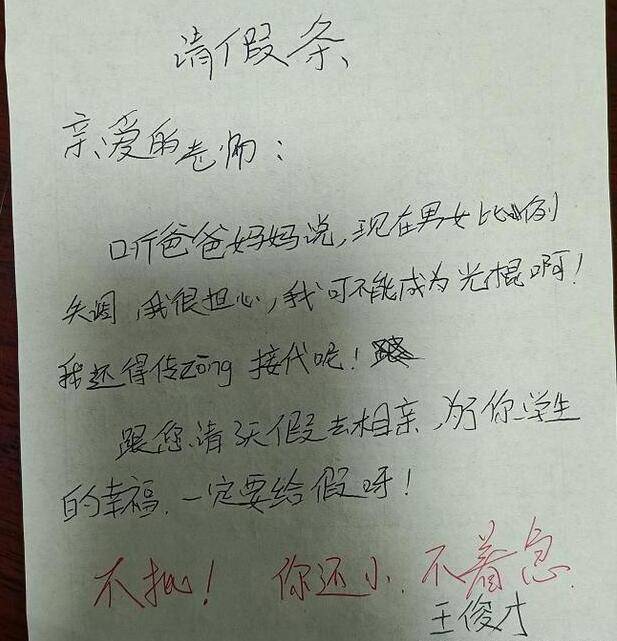 请假条
亲爱的老师：
听爸爸妈妈说，现在男女比例
失调，我很担心，我可不能成为光棍啊！
我还得传zōng接代呢！
跟您请3天假去相亲，为了你学生
的幸福，一定要给假呀！
不批！ 你还小，不着急.
王俊才